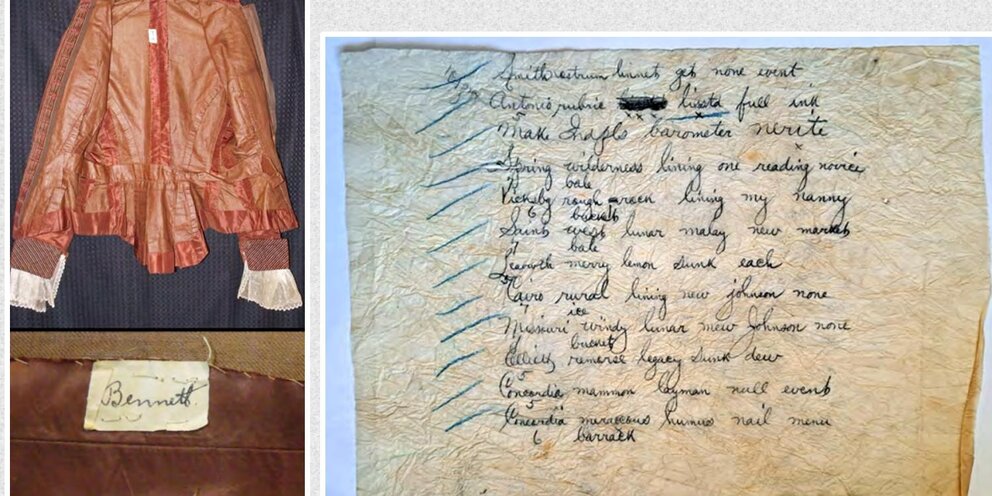 Bennett
Smith nostrum linnet get none event
Antonio rubric lissta full ink
5
Make Indpls barometer nerite
Spring wilderness lining one reading novice
7 bale
Vicksbg rough rack lining my nanny
6 bucket
Saints west lunar malay new market
7 bale
Leawoth merry lemon sunk each
Cairo rural lining new johnson none
7 ice
Missouri windy lunar new Johnson none
bucket
remorse legacy sunk dew
Concordia mammon layman null events
5
Concordia meraccous humus nail menu
6 barrack